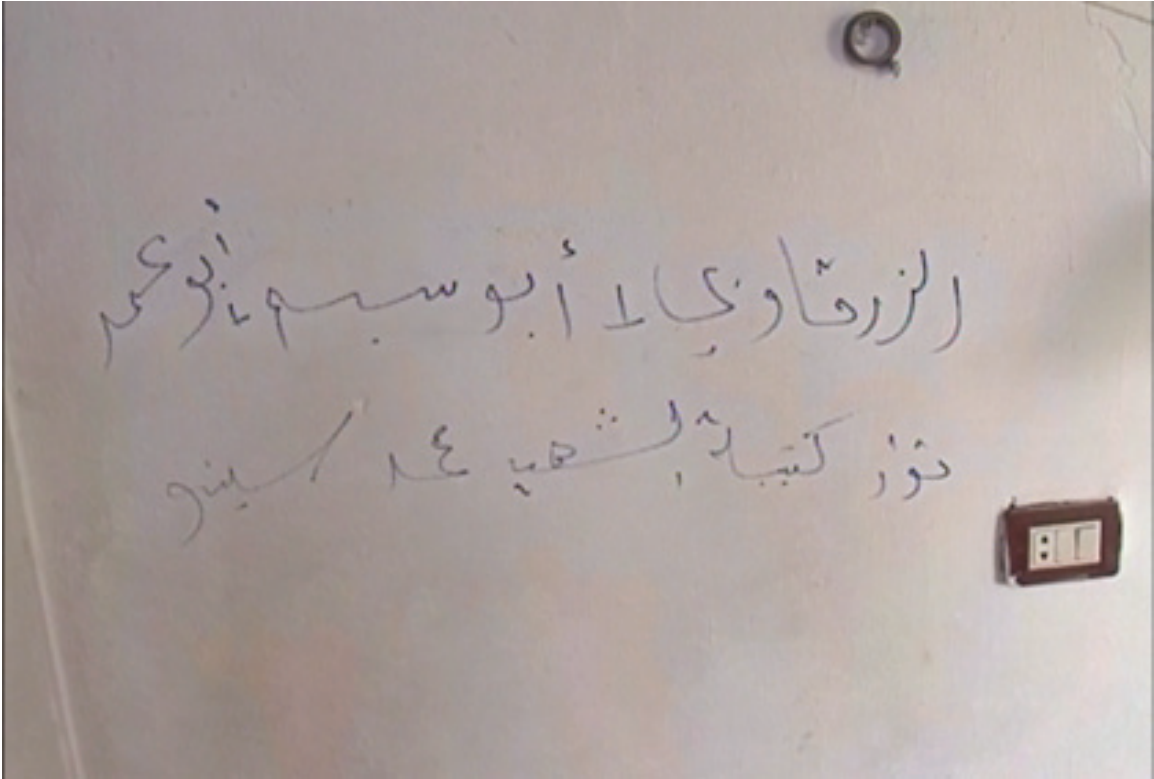 الزرقاوي لا أبو سيم أبو عمر
ثوار كتيبة الشهيد محمد